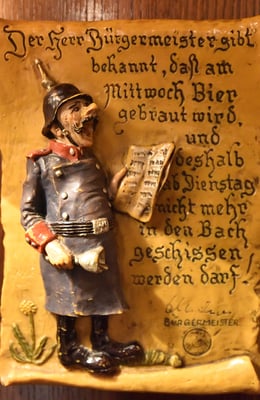 Der Herr Bürgermeister gibt
bekannt, daß am
Mittwoch Bier
gebraut wird,
und
deshalb
ab Dienstag
nicht mehr
in den Bach
geschissen
werden darf!
BÜRGERMEISTER